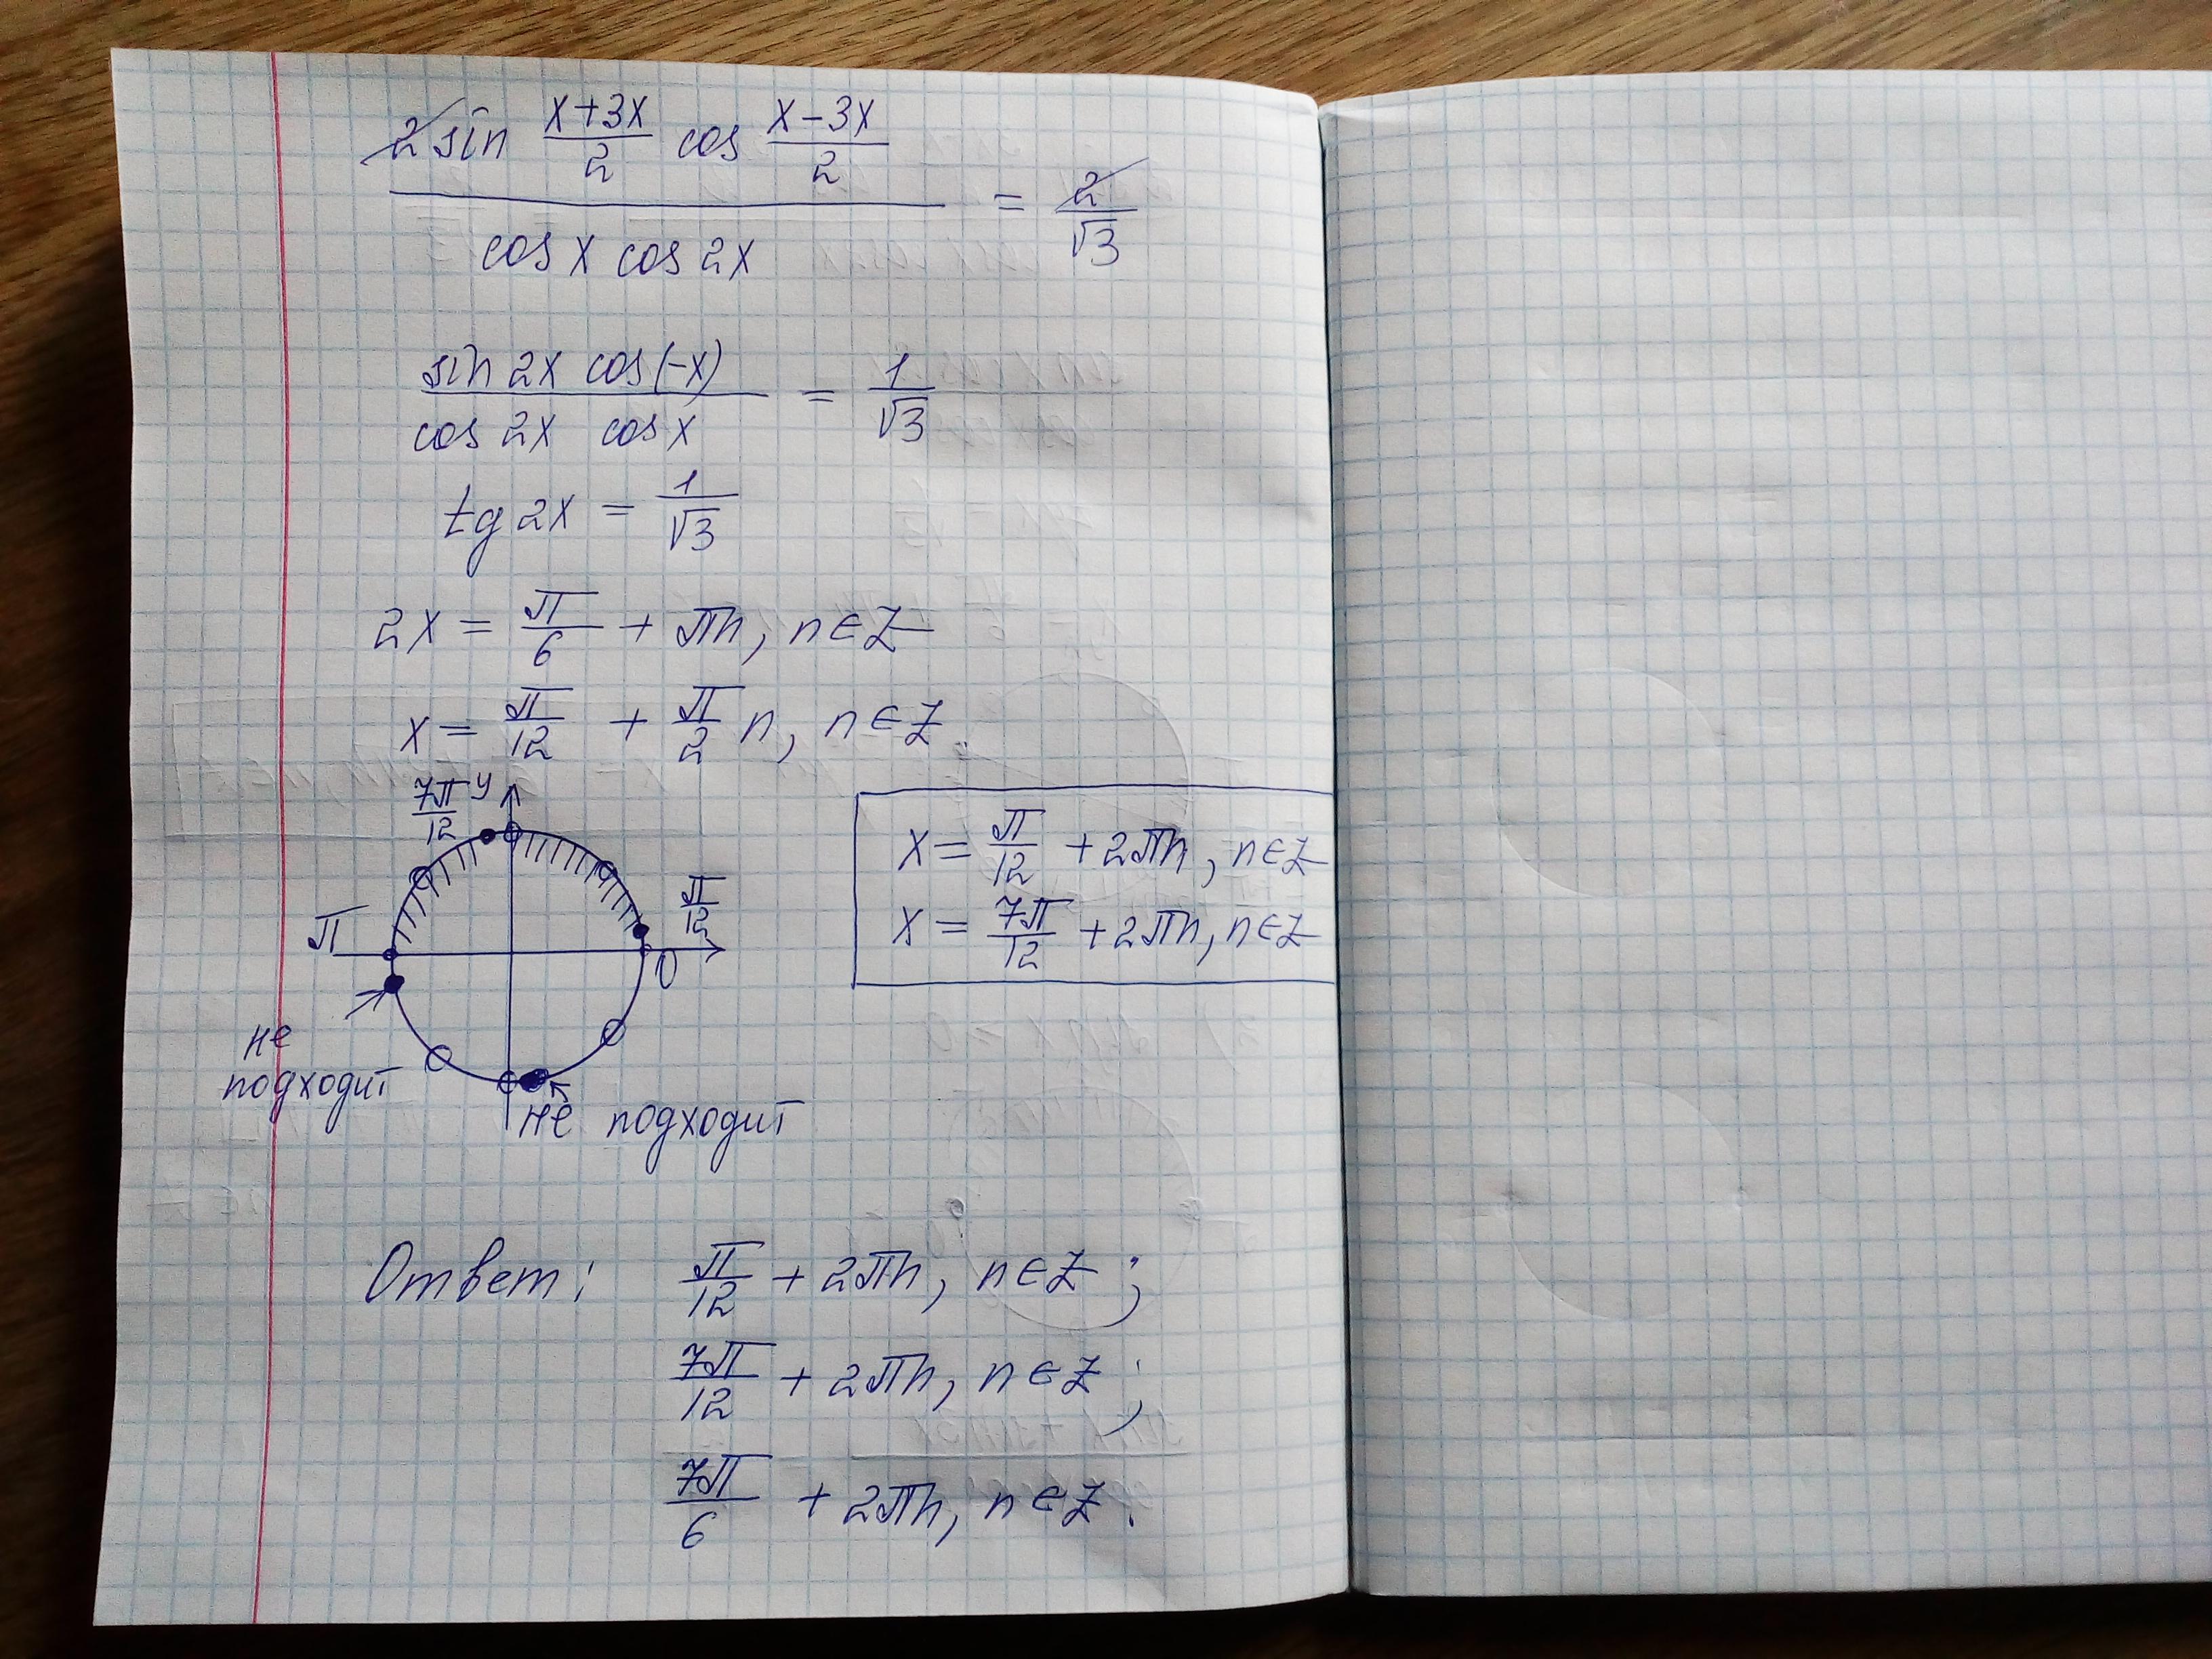 2 sin (x+3x)/2 cos (x-3x)/2 / (cos x cos 2x) = 2/√3
sin 2x cos(-x) / (cos 2x cos x) = 1/√3
tg 2x = 1/√3
2x = π/6 + πn, n∈Z
x = π/12 + π/2 n, n∈Z
7π/12 y
π/12
π
0
не
подходит
не подходит
x = π/12 + 2πn, n∈Z
x = 7π/12 + 2πn, n∈Z
Ответ: π/12 + 2πn, n∈Z;
7π/12 + 2πn, n∈Z;
7π/6 + 2πn, n∈Z.